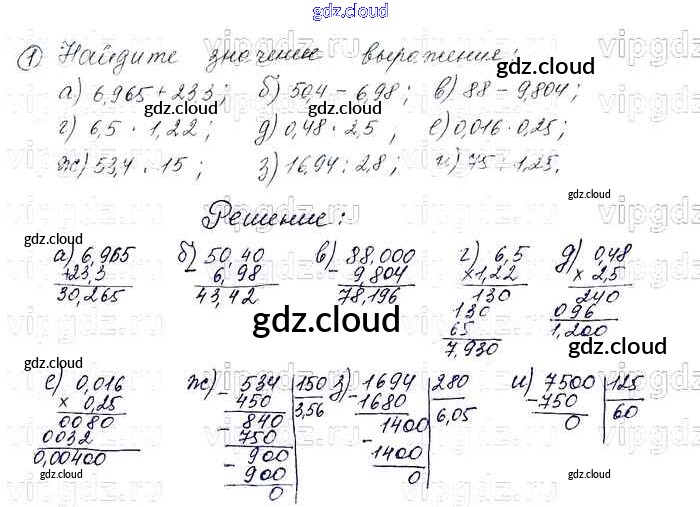 gdz.cloud
① Найдите значение выражение:
а) 6,965 + 23,3; б) 50,4 - 6,98; в) 88 - 9,804;
г) 6,5 · 1,22; д) 0,48 · 2,5, е) 0,016 · 0,25;
ж) 53,4 : 15; з) 16,94 : 2,8; и) 75 : 1,25.
Решение:
а) 6,965 б) 50,40 в) 88,000 г) 6,5 д) 0,48
+23,3 - 6,98 - 9,804 ×1,22 × 2,5
30,265 43,42 78,196 130 240
130 096
65 1,200
7,930
е) 0,016 ж) - 534 | 150 з) - 1694 | 280 и) - 7500 | 125
× 0,25 450 | 3,56 1680 | 6,05 750 | 60
0080 - 840 - 1400 0
0032 750 1400
0,00400 - 900 0
900
0
gdz.cloud
gdz.cloud
gdz.cloud
gdz.cloud
gdz.cloud
gdz.cloud
gdz.cloud
gdz.cloud
gdz.cloud
gdz.cloud